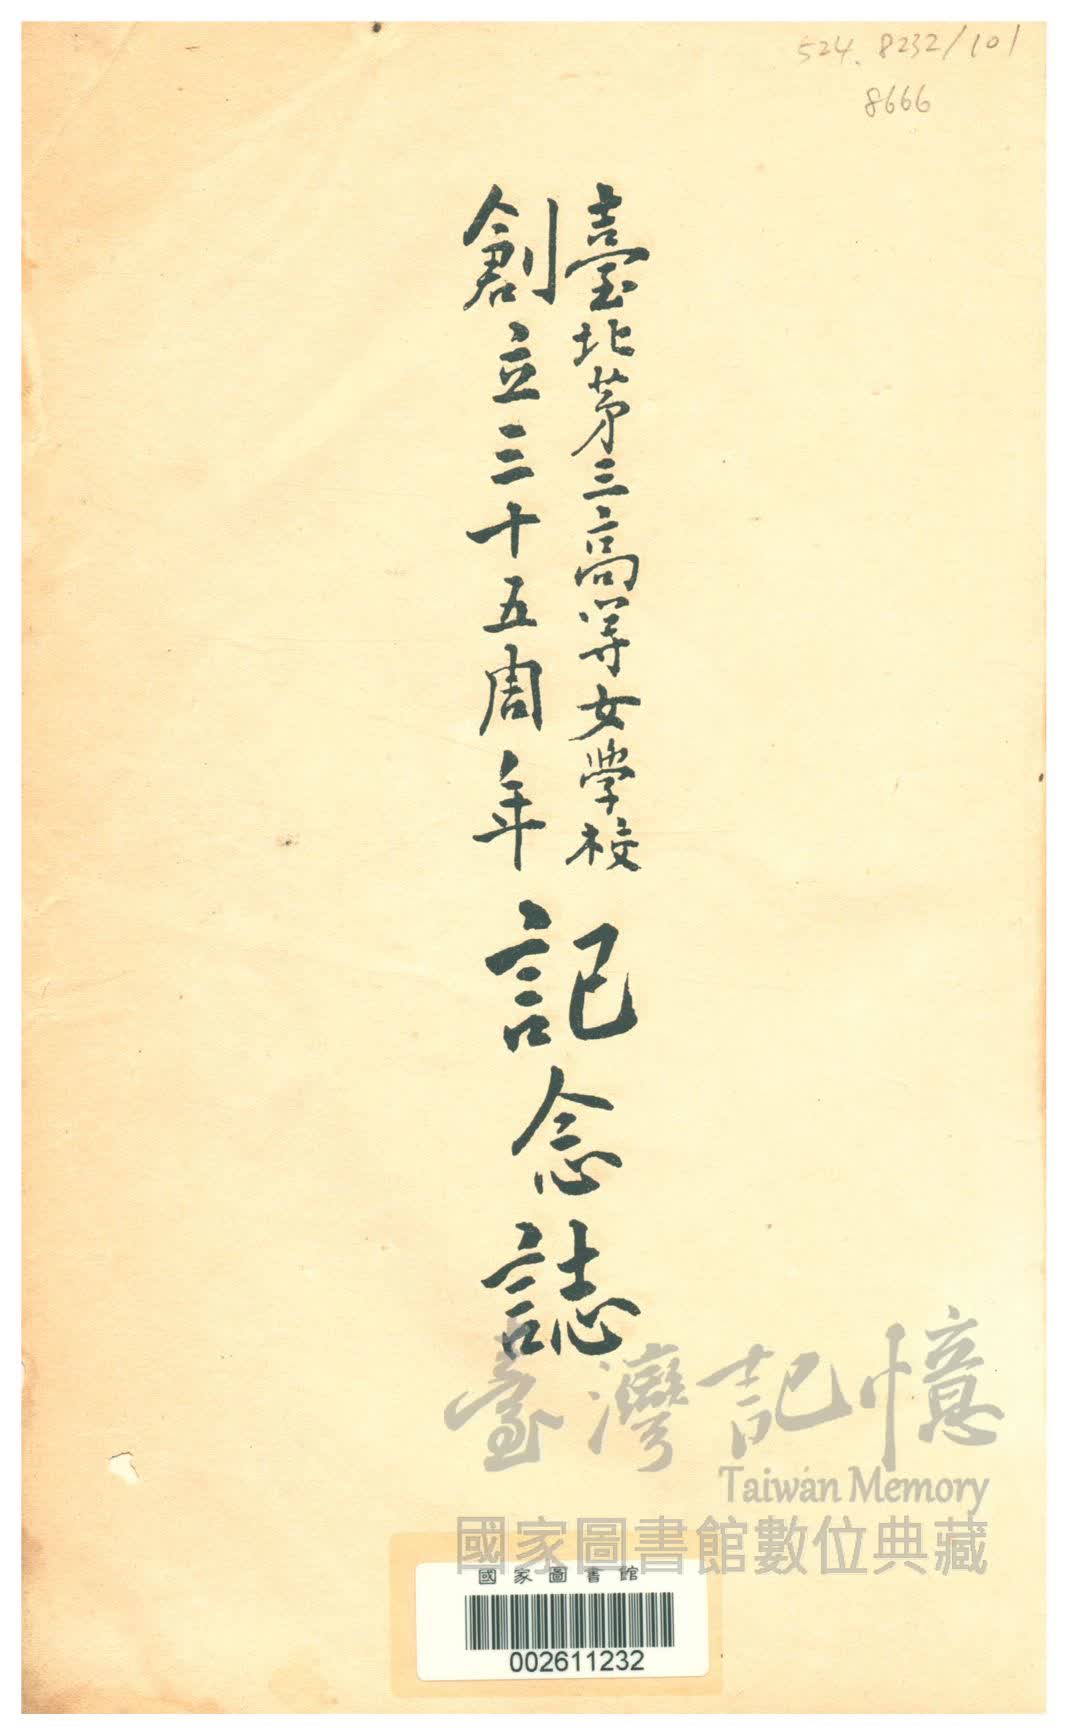 524.8232/101
8666
臺北第三高等女学校
創立三十五周年
記念誌
臺灣記憶
Taiwan Memory
國家圖書館數位典藏
國家圖書館
002611232